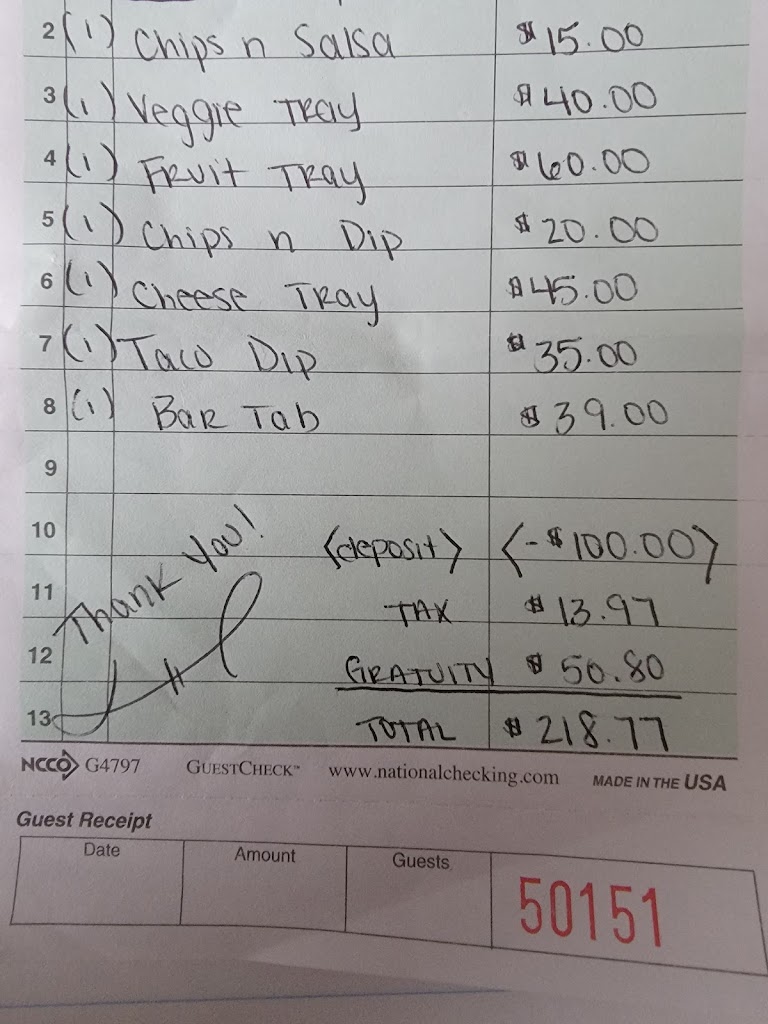 2 (1) Chips n Salsa $15.00
3 (1) Veggie Tray $40.00
4 (1) Fruit Tray $60.00
5 (1) Chips n Dip $20.00
6 (1) Cheese Tray $45.00
7 (1) Taco Dip $35.00
8 (1) Bar Tab $39.00
9
10 <deposit> <-$100.00>
Thank You!
11 TAX $13.97
12 GRATUITY $50.80
13 TOTAL $218.77
NCCO G4797 GUESTCHECK™ www.nationalchecking.com MADE IN THE USA
Guest Receipt
Date Amount Guests
50151